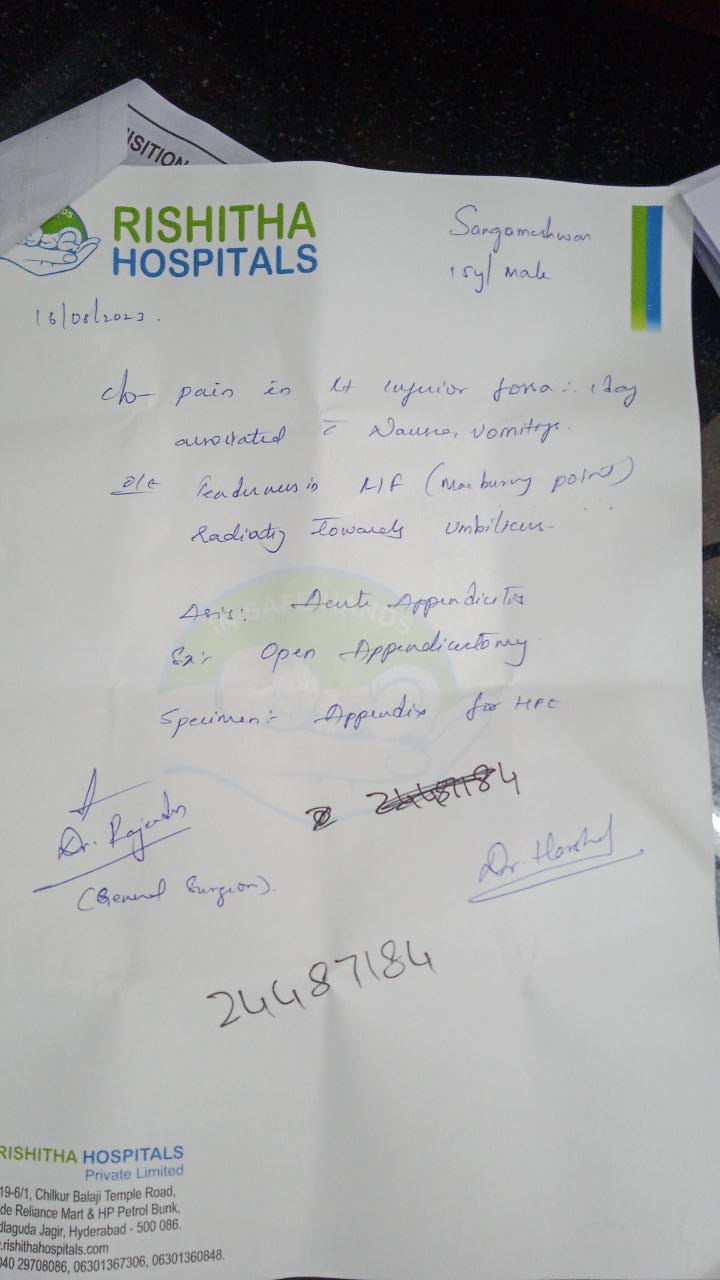 ISITION
RISHITHA
HOSPITALS
Sangameshwar
15y/ male
16/08/2023.
c/o pain in Rt inferior fossa :- 1 day
associated c Nausea, vomitings.
O/E Tenderness in RIF (Macburny point)
Radiating towards umbilicus.
IN SAFE HANDS
Acute Appendicitis
Sx:- Open Appendicectomy
Specimen:- Appendix for HPE
24487184
Dr. Rajender
(General Surgeon).
Dr. Harshal
24487184
RISHITHA HOSPITALS
Private Limited
19-6/1, Chilkur Balaji Temple Road,
de Reliance Mart & HP Petrol Bunk,
dlaguda Jagir, Hyderabad - 500 086.
.rishithahospitals.com
040 29708086, 06301367306, 06301360848.